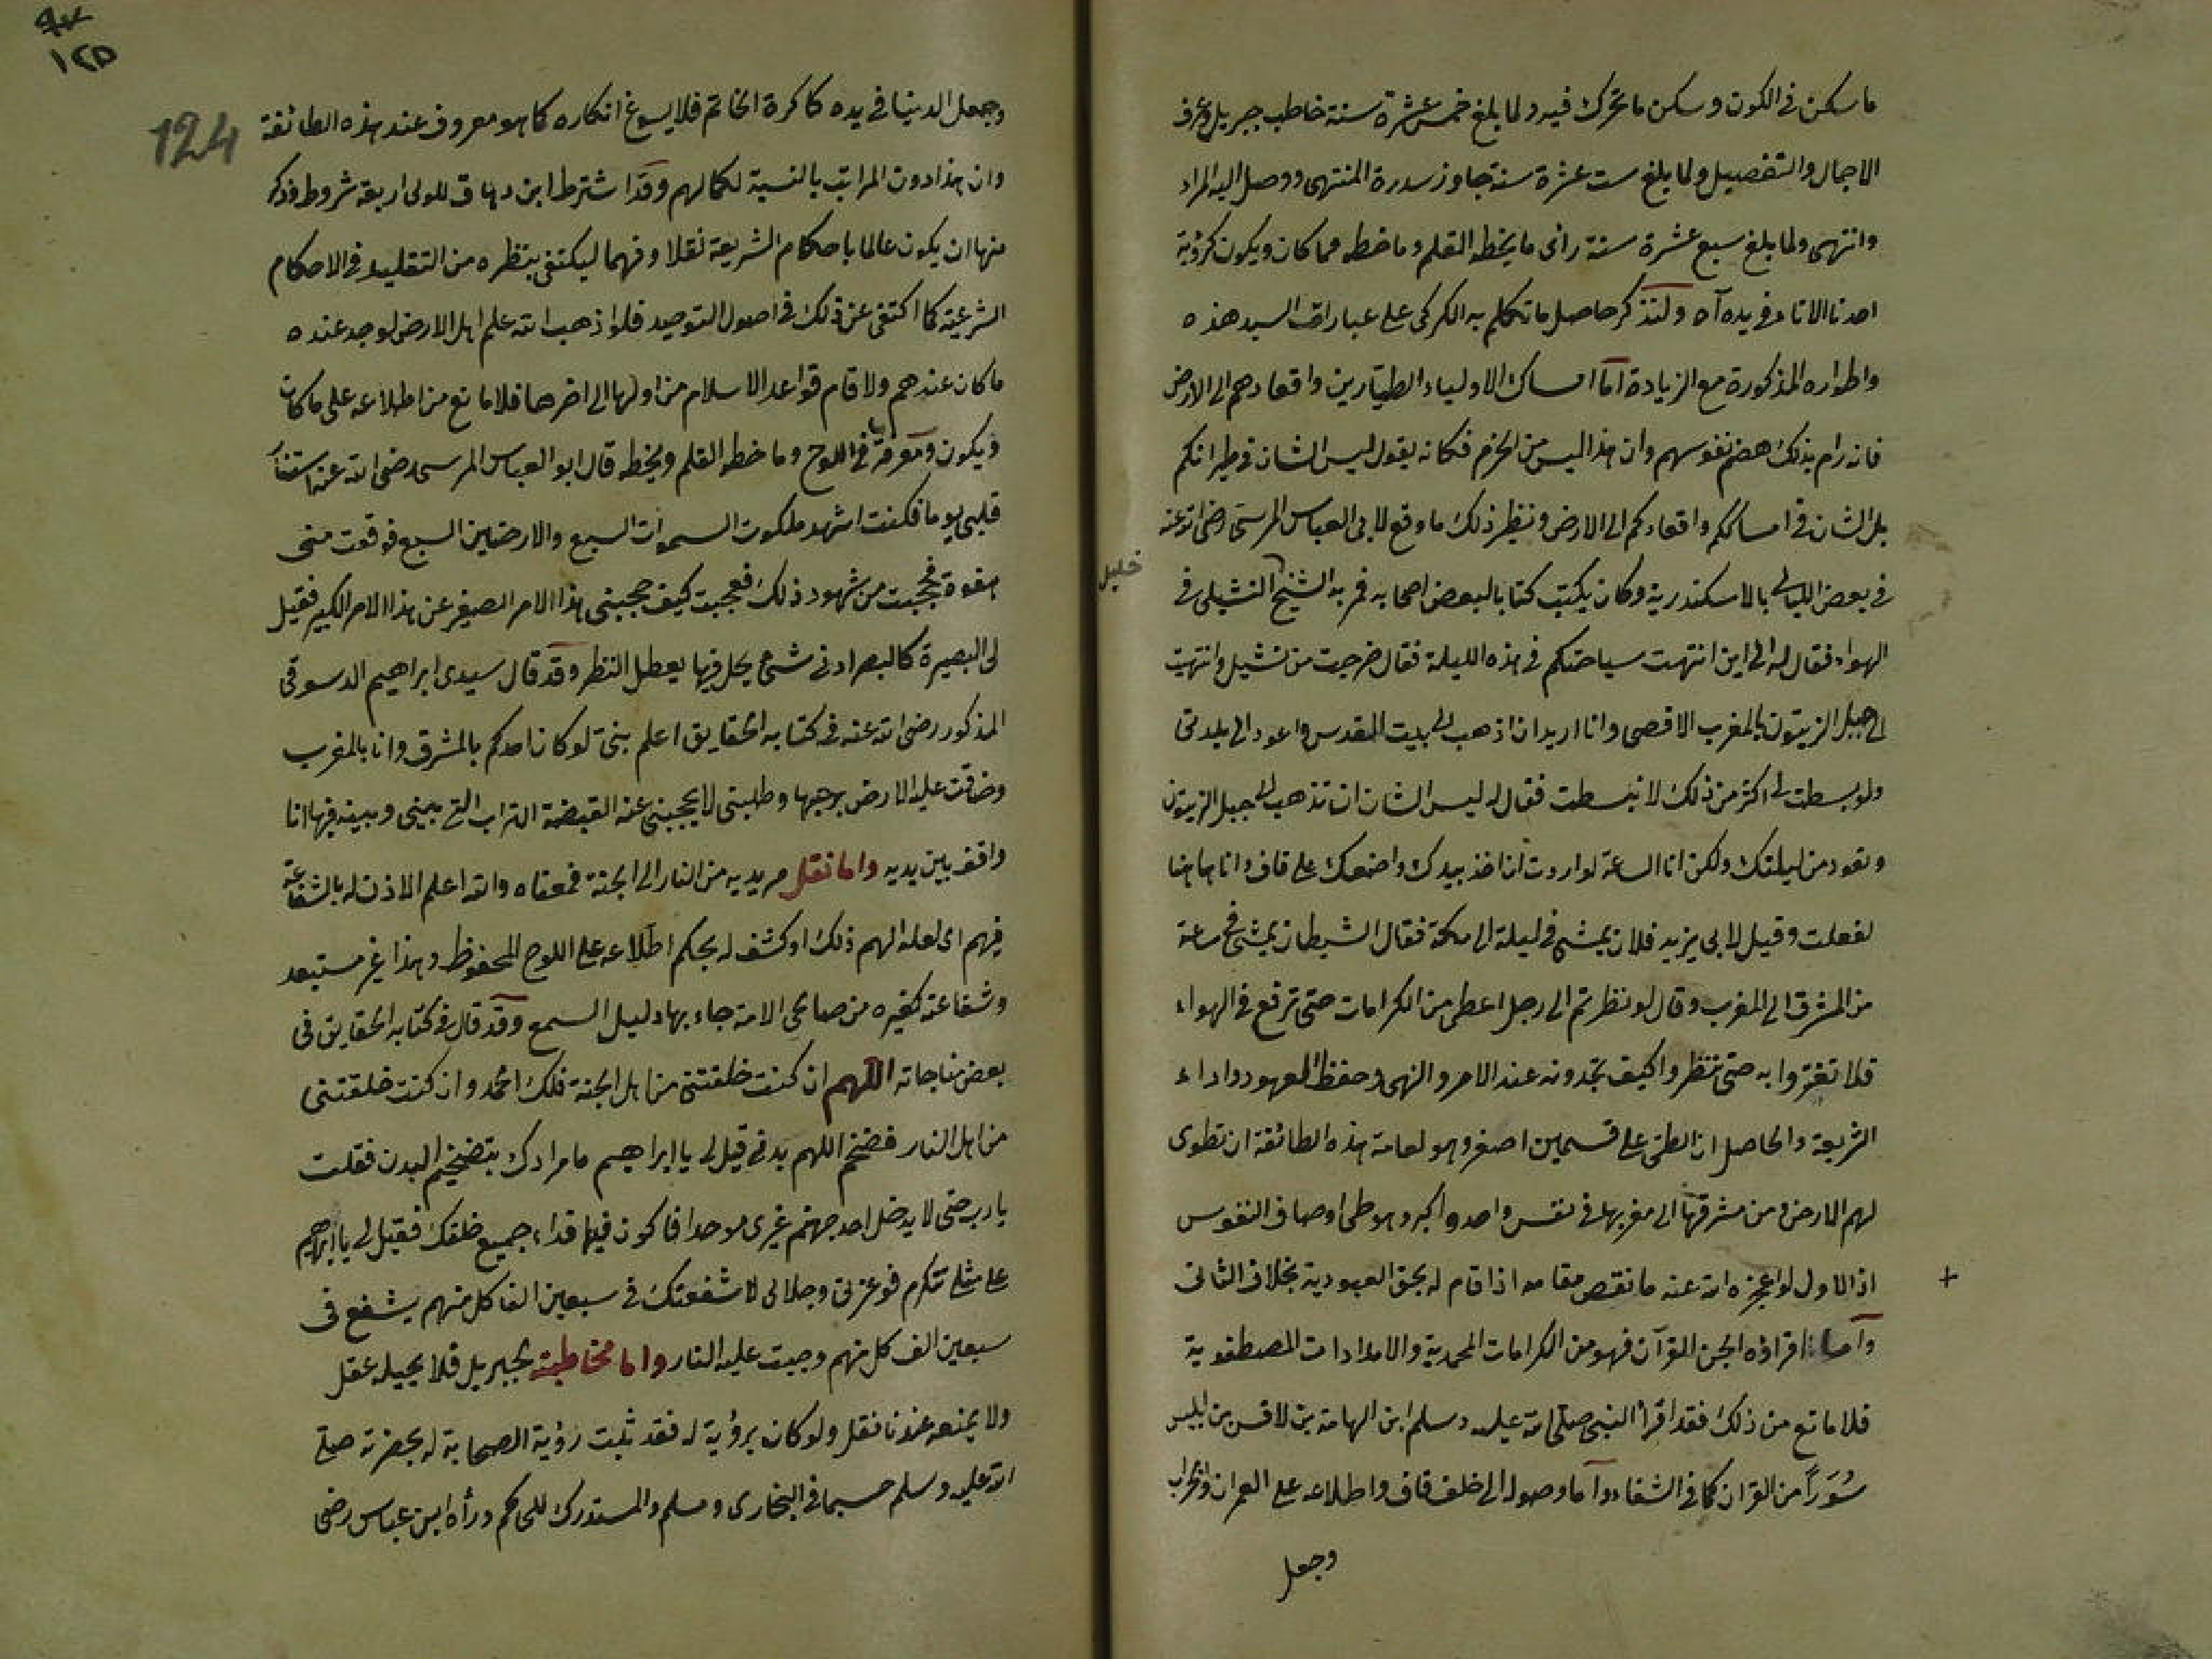 ما سكن في الكون وسكن ما تحرك فيه ولما بلغ خمس عشرة سنة خاطب جبريل وعرف
الاجمال والتفصيل ولما بلغ ست عشرة سنة جاوز سدرة المنتهى ووصل اليه المراد
وانتهى ولما بلغ سبع عشرة سنة راى ما يخطه القلم وما خطه مما كان ويكون كرؤية
احدنا الاناء في يده اه ولنذكر حاصل ما تكلم به الكركي على عبارات السيد هذه
واطواره المذكورة مع الزيادة اما امساك الاولياء الطيارين واقعادهم الى الارض
فانه رام بذلك هضم نفوسهم وان هذا ليس من الحزم فكانه يقول ليس الشان في طيرانكم
بل الشان في امساككم واقعادكم الى الارض ونظير ذلك ما وقع لابي العباس المرسي رضي الله عنه
في بعض الليالي بالاسكندرية وكان يكتب كتابا لبعض اصحابه فمر به الشيخ النشيلي في
خليل
الهواء فقال له الى اين انتهت سياحتكم في هذه الليلة فقال خرجت من نشيل وانتهيت
الى جبل الزيتون بالمغرب الاقصى وانا اريد ان اذهب الى بيت المقدس واعود الى بلدتي
ولو بسطت لي اكثر من ذلك لانبسطت فقال له ليس الشان ان تذهب الى جبل الزيتون
وتعود من ليلتك ولكن انا الساعة لو اردت ان اخذ بيدك واضعك على قاف وانا هاهنا
لفعلت وقيل لابي يزيد فلان يمشي في ليلة الى مكة فقال الشيطان يمشي في ساعة
من المشرق الى المغرب وقال لو نظرتم الى رجل اعطي من الكرامات حتى ترفع في الهواء
فلا تغتروا به حتى تنظروا كيف تجدونه عند الامر والنهي وحفظ العهود واداء
الشريعة والحاصل ان الطي على قسمين اصغر وهو لعامة هذه الطائفة ان تطوى
لهم الارض من مشرقها الى مغربها في نفس واحد واكبر وهو طي اوصاف النفوس
اذ الاول لو اعجزه الله عنه ما نقص مقامه اذا قام له بحق العبودية بخلاف الثاني
واما اقراؤه الجن القرآن فهو من الكرامات المحمدية والامدادات المصطفوية
فلا مانع من ذلك فقد اقرأ النبي صلى الله عليه وسلم ابن الهامة بن لاقس بن ابليس
سُوَرًا من القران كما في الشفاء واما وصوله الى خلف قاف واطلاعه على العمران والخراب
وجعل
١٢٥
124
وجعل الدنيا في يده كاكرة الخاتم فلا يسوغ انكاره كما هو معروف عند هذه الطائفة
وان هذا دون المراتب بالنسبة لكمالهم وقد اشترط ابن دهاق للولي اربعة شروط وذكر
منها ان يكون عالما باحكام الشريعة نقلا وفهما ليكتفي بنظره من التقليد في الاحكام
الشرعية كما اكتفى عن ذلك في اصول التوحيد فلو اذهب الله علم اهل الارض لوجد عنده
ما كان عندهم ولاقام قواعد الاسلام من اولها الى اخرها فلا مانع من اطلاعه على ما كان
ويكون ومعرفة ما في اللوح وما خطه القلم ويخطه قال ابو العباس المرسي رضي الله عنه
قلبي يوما فكنت اشهد ملكوت السموات السبع والارضين السبع فوقعت مني
هفوة فحجبت من شهود ذلك فعجبت كيف حجبني هذا الامر الصغير عن هذا الامر الكبير فقيل
لي البصيرة كالبصر ادنى شيء يحل فيها يعطل النظر وقد قال سيدي ابراهيم الدسوقي
المذكور رضي الله عنه في كتابه الحقايق اعلم بني لو كان احدكم بالمشرق وانا بالمغرب
وضاقت عليه الارض برحبها وطلبني لا يحجبني عنه القبضة التراب التي بيني وبينه فها انا
واقف بين يديه واما نقل مريديه من النار الى الجنة فمعناه والله اعلم الاذن له بالشفاعة
فيهم اي لعله الهم ذلك او كشف له بحكم اطلاعه على اللوح المحفوظ وهذا غير مستبعد
وشفاعته كغيره من صالحي الامة جاء بها دليل السمع وقد قال في كتابه الحقايق في
بعض مناجاته اللهم ان كنت خلقتني من اهل الجنة فلك الحمد وان كنت خلقتني
من اهل النار فضخم اللهم بدني قيل لي يا ابراهيم ما مرادك بتضخيم البدن فقلت
يا رب حتى لا يدخل احد جهنم غيري موحدا فاكون فيها فداء جميع خلقك فقيل لي يا ابراهيم
على مثلي تتكرم فوعزتي وجلالي لاشفعنك في سبعين الفا كل منهم يشفع في
سبعين الف كل منهم وجبت عليه النار واما مخاطبته لجبريل فلا يحيله عقل
ولا يمنعه عندنا نقل ولو كان برؤية له فقد ثبت رؤية الصحابة له بحضرته صلى
الله عليه وسلم حسبما في البخاري ومسلم والمستدرك للحاكم ورأه ابن عباس رضي